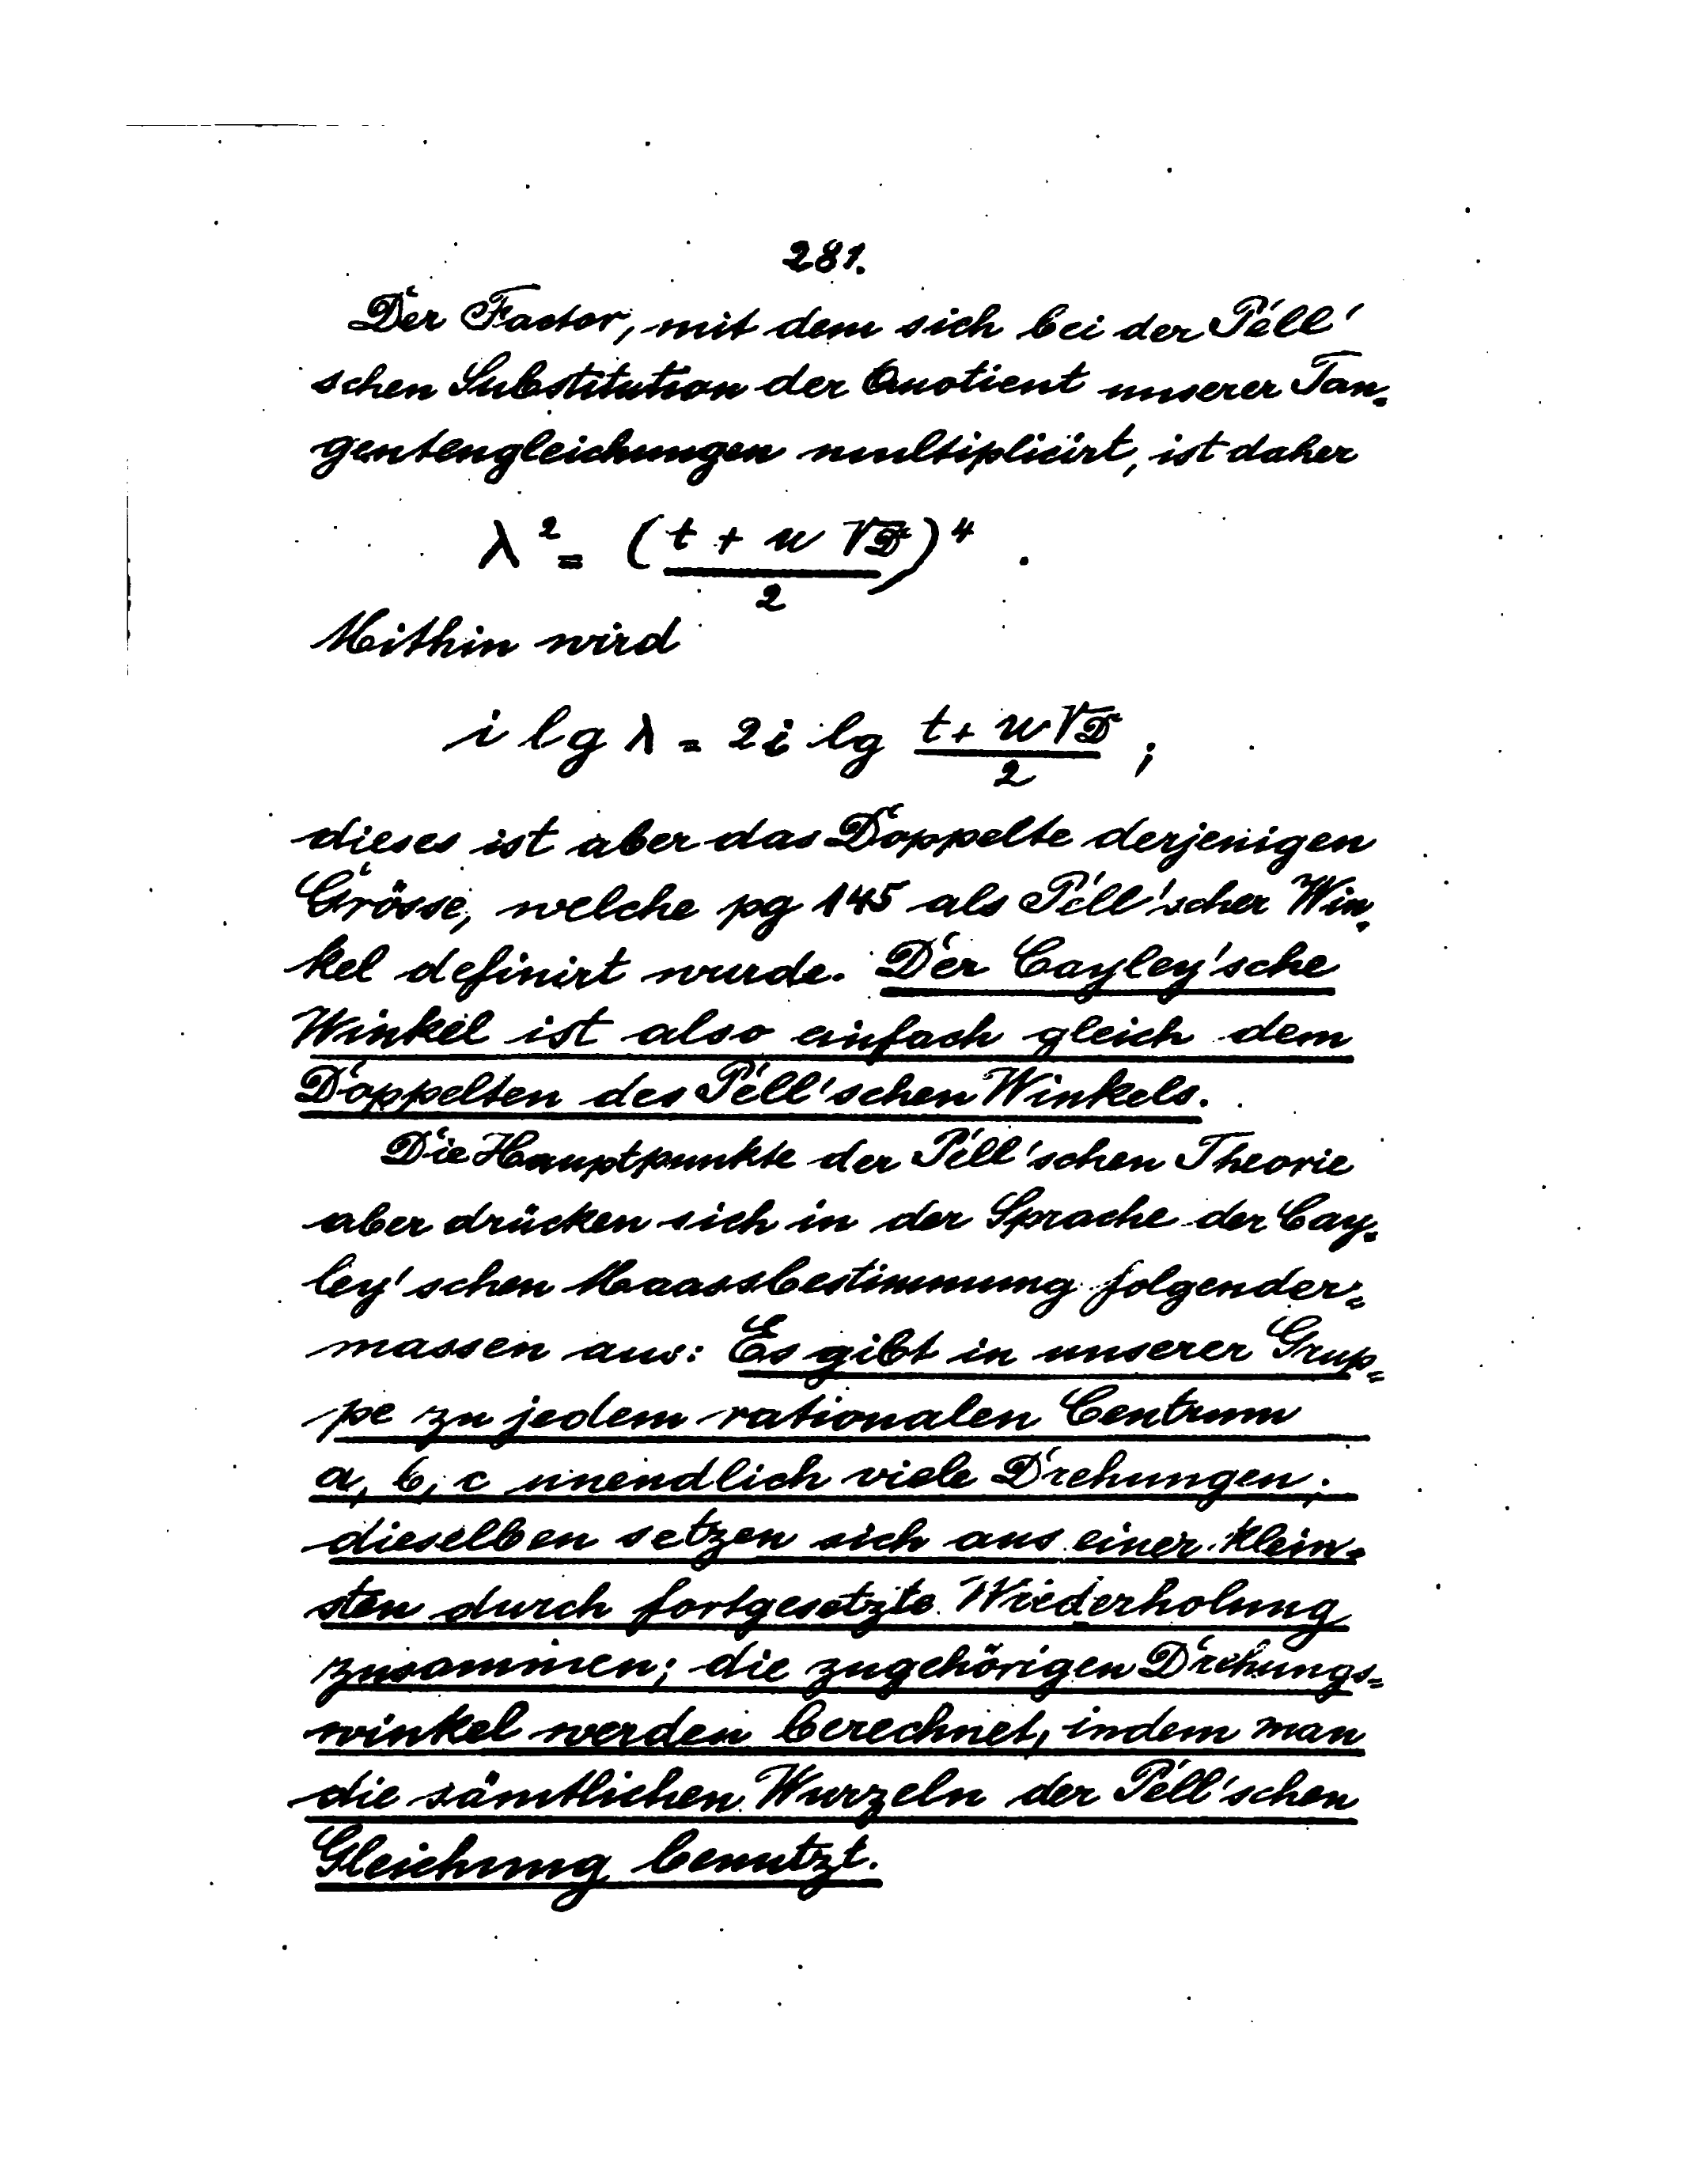 281.
Der Factor, mit dem sich bei der Pell'
schen Substitution der Quotient unserer Tan-
gentengleichungen multiplicirt, ist daher
λ² = ((t + u √D)/2)⁴.
Mithin wird
i lg λ = 2i lg (t + u√D)/2 ;
dieses ist aber das Doppelte derjenigen
Grösse, welche pg 145 als Pell'scher Win-
kel definirt wurde. Der Cayley'sche
Winkel ist also einfach gleich dem
Doppelten des Pell'schen Winkels.
Die Hauptpunkte der Pell'schen Theorie
aber drücken sich in der Sprache der Cay-
ley'schen Maassbestimmung folgender=
massen aus: Es gibt in unserer Grup=
pe zu jedem rationalen Centrum
a, b, c unendlich viele Drehungen;
dieselben setzen sich aus einer klein-
sten durch fortgesetzte Wiederholung
zusammen; die zugehörigen Drehungs=
winkel werden berechnet, indem man
die sämtlichen Wurzeln der Pell'schen
Gleichung benutzt.